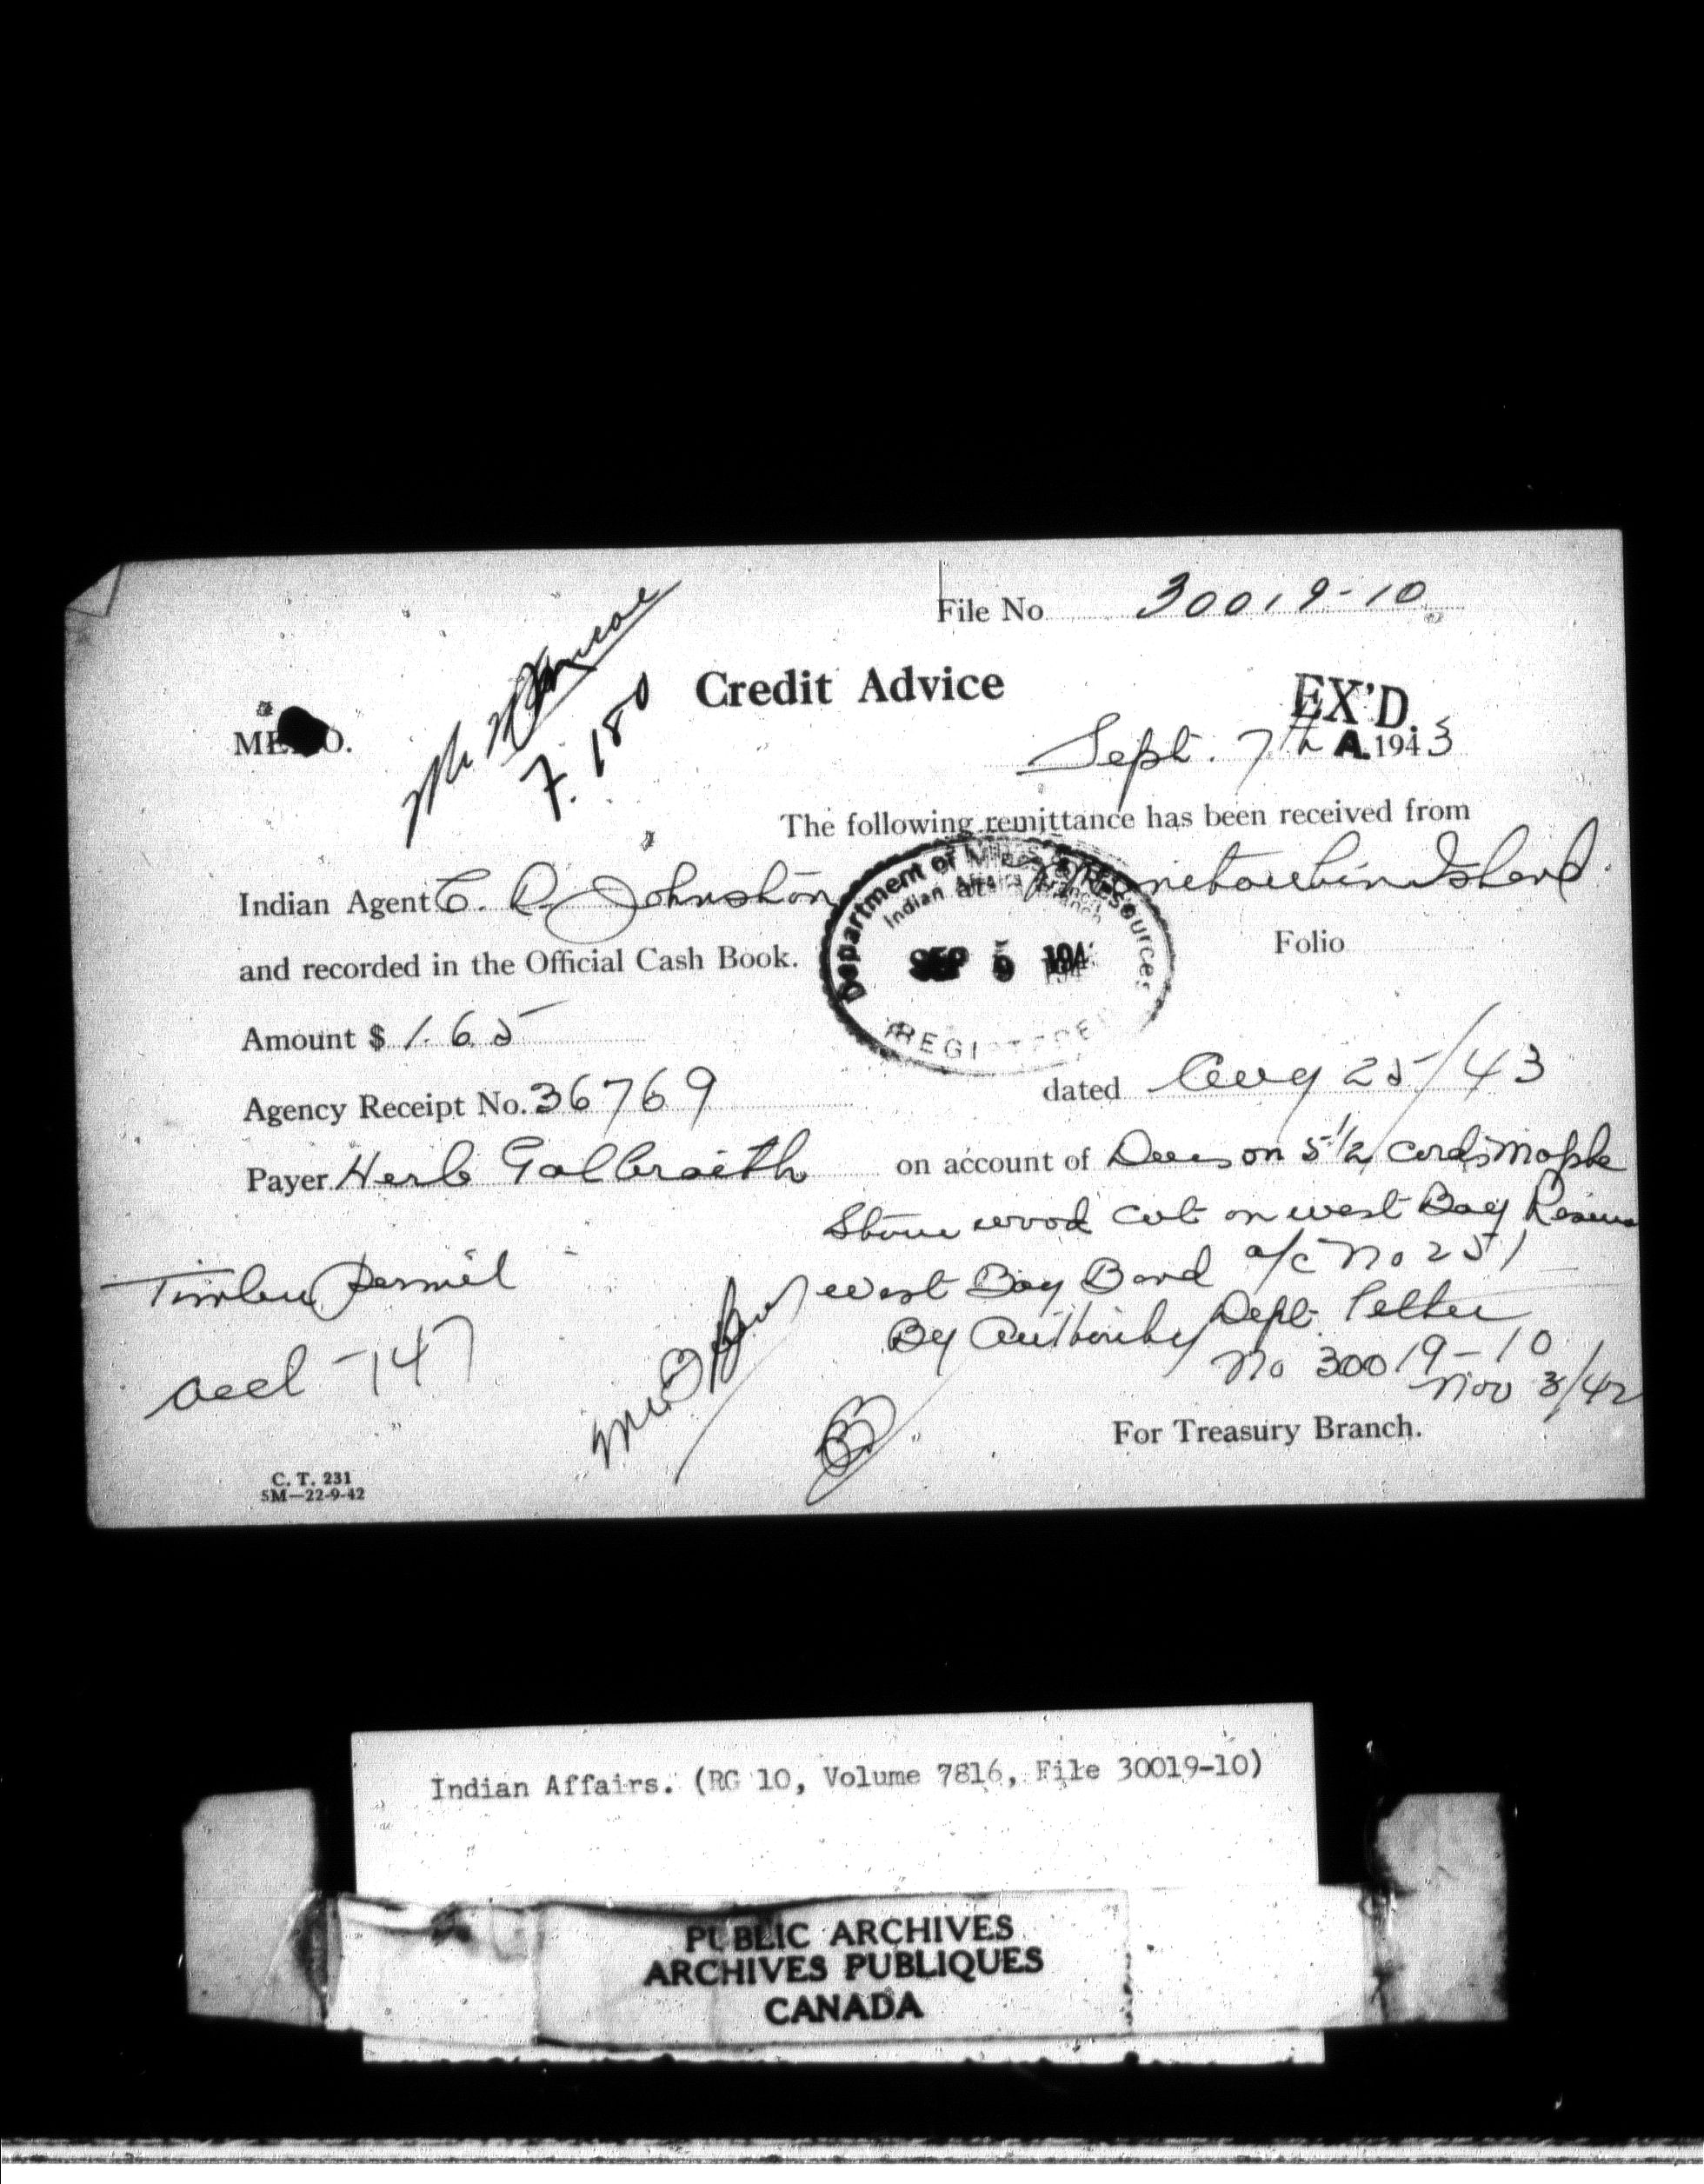 File No 30019-10
Credit Advice
EX'D.
MEMO.
F. 180
Sept. 7th A. 1943
The following remittance has been received from
Indian Agent C. R. Johnston Manitoulin Island
Department of Mines & Resources
Indian Affairs Branch
SEP 9 194
REGISTERED
and recorded in the Official Cash Book. Folio
Amount $ 1.65
Agency Receipt No. 36769 dated Aug 25/43
Payer Herb Galbraith on account of Dues on 5 1/2 cords maple
Stove wood cut on west Bay Reserve
West Bay Band a/c No 251
By Authority Dept. Letter
No 30019-10
Nov 3/42
Timber Permit
accl -147
For Treasury Branch.
C. T. 231
5M—22-9-42
Indian Affairs. (RG 10, Volume 7816, File 30019-10)
PUBLIC ARCHIVES
ARCHIVES PUBLIQUES
CANADA